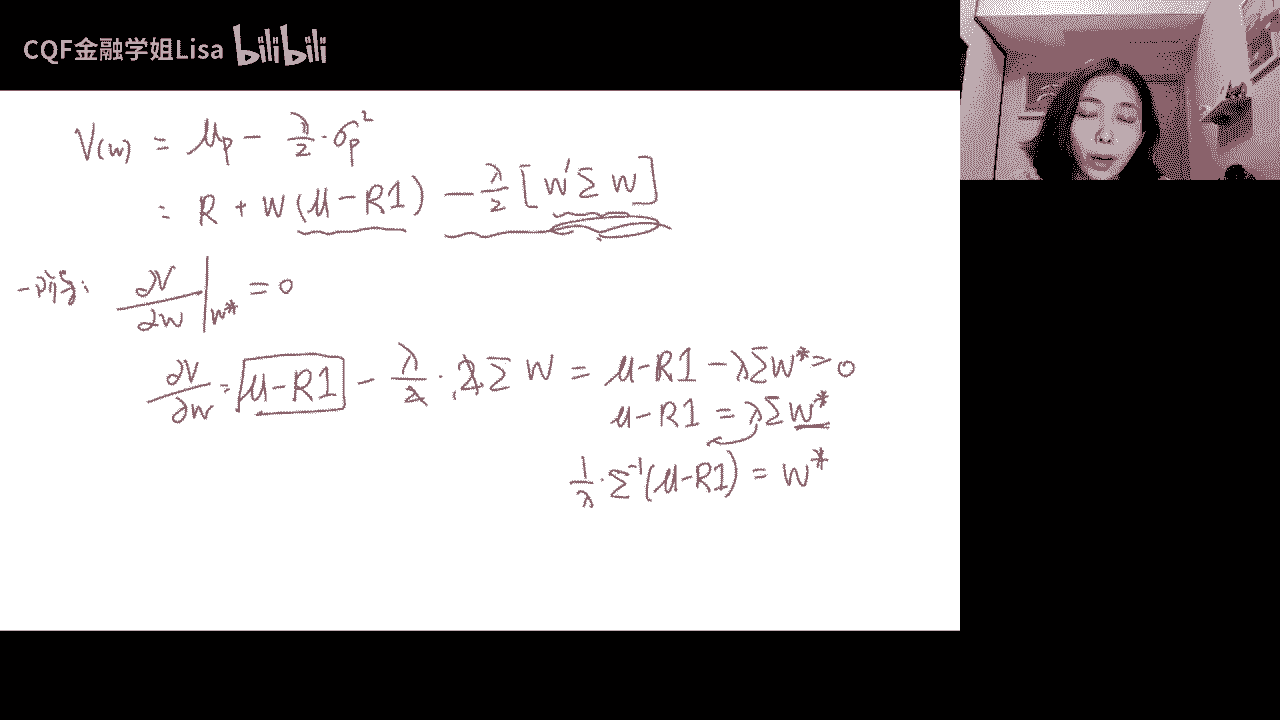 CQF金融学姐Lisa bilibili
V(w) = μp − λ/2 · σp²
= R + W(μ − R1) − λ/2 [w'Σ w]
一阶导: ∂V/∂w |w* = 0
∂V/∂w = μ − R1 − λ/2 · 2Σ W = μ − R1 − λΣW* = 0
μ − R1 = λΣ w*
1/λ · Σ⁻¹(μ − R1) = W*